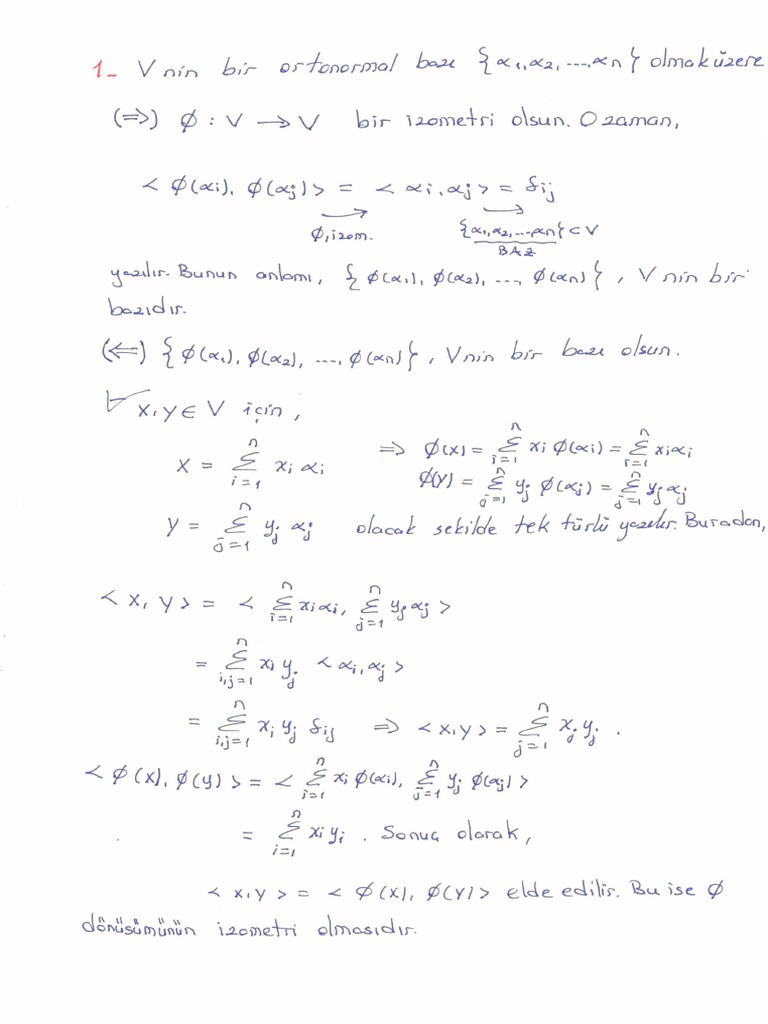 1- V nin bir ortonormal bazı {α1,α2,...,αn} olmak üzere
(=>) Ø : V → V bir izometri olsun. O zaman,
< Ø(αi), Ø(αj) > = < αi, αj > = δij
Ø, izom. {α1,α2,...αn} ⊂ V
BAZ
yazılır. Bunun anlamı, {Ø(α1), Ø(α2), ..., Ø(αn)}, V nin bir
bazıdır.
(<=) {Ø(α1), Ø(α2), ..., Ø(αn)}, V nin bir bazı olsun.
∀ x,y ∈ V için,
x = Σ_{i=1}^{n} xi αi => Ø(x) = Σ_{i=1}^{n} xi Ø(αi) = Σ_{i=1}^{n} xiαi
Ø(y) = Σ_{j=1}^{n} yj Ø(αj) = Σ_{j=1}^{n} yj αj
y = Σ_{j=1}^{n} yj αj olacak sekilde tek türlü yazılır. Buradan,
< x, y > = < Σ_{i=1}^{n} xiαi, Σ_{j=1}^{n} yj αj >
= Σ_{i,j=1}^{n} xi yj < αi, αj >
= Σ_{i,j=1}^{n} xi yj δij => < x,y > = Σ_{j=1}^{n} xj yj .
< Ø(x), Ø(y) > = < Σ_{i=1}^{n} xi Ø(αi), Σ_{j=1}^{n} yj Ø(αj) >
= Σ_{i=1}^{n} xi yi . Sonuç olarak,
< x,y > = < Ø(x), Ø(y) > elde edilir. Bu ise Ø
dönüşümünün izometri olmasıdır.